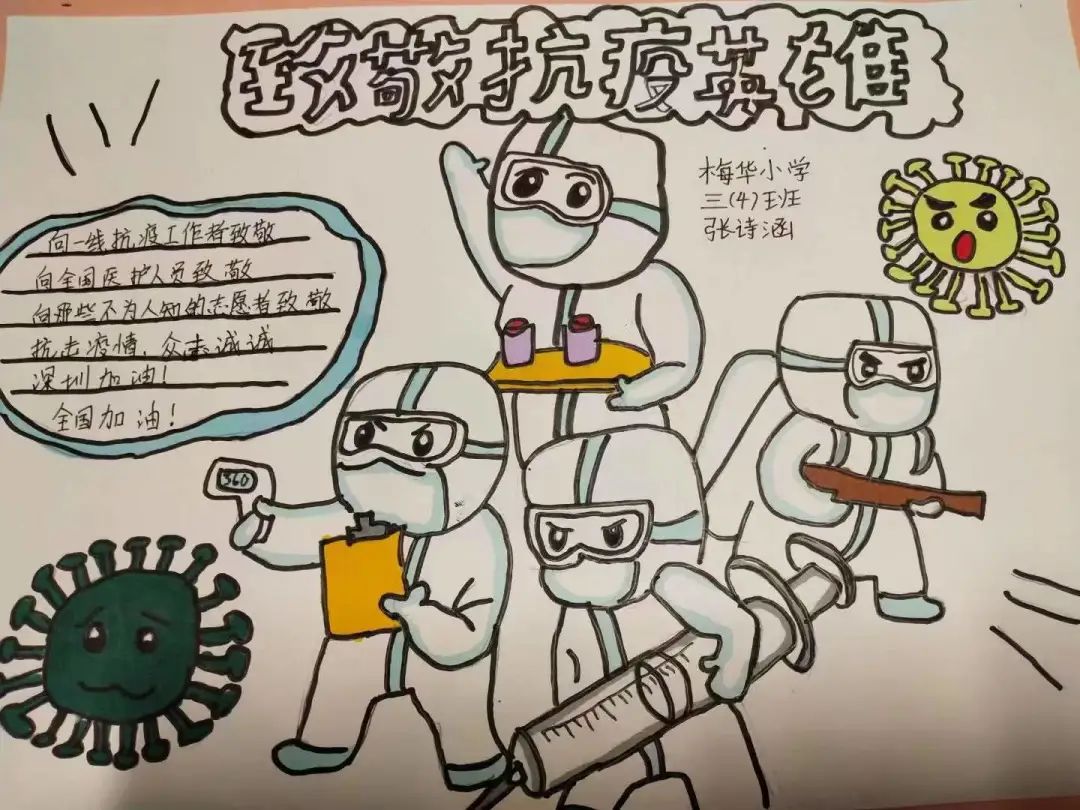 致敬抗疫英雄
梅华小学
三(4)班
张诗涵
向一线抗疫工作者致敬
向全国医护人员致敬
向那些不为人知的志愿者致敬
抗击疫情，众志诚诚
深圳加油！
全国加油！
360